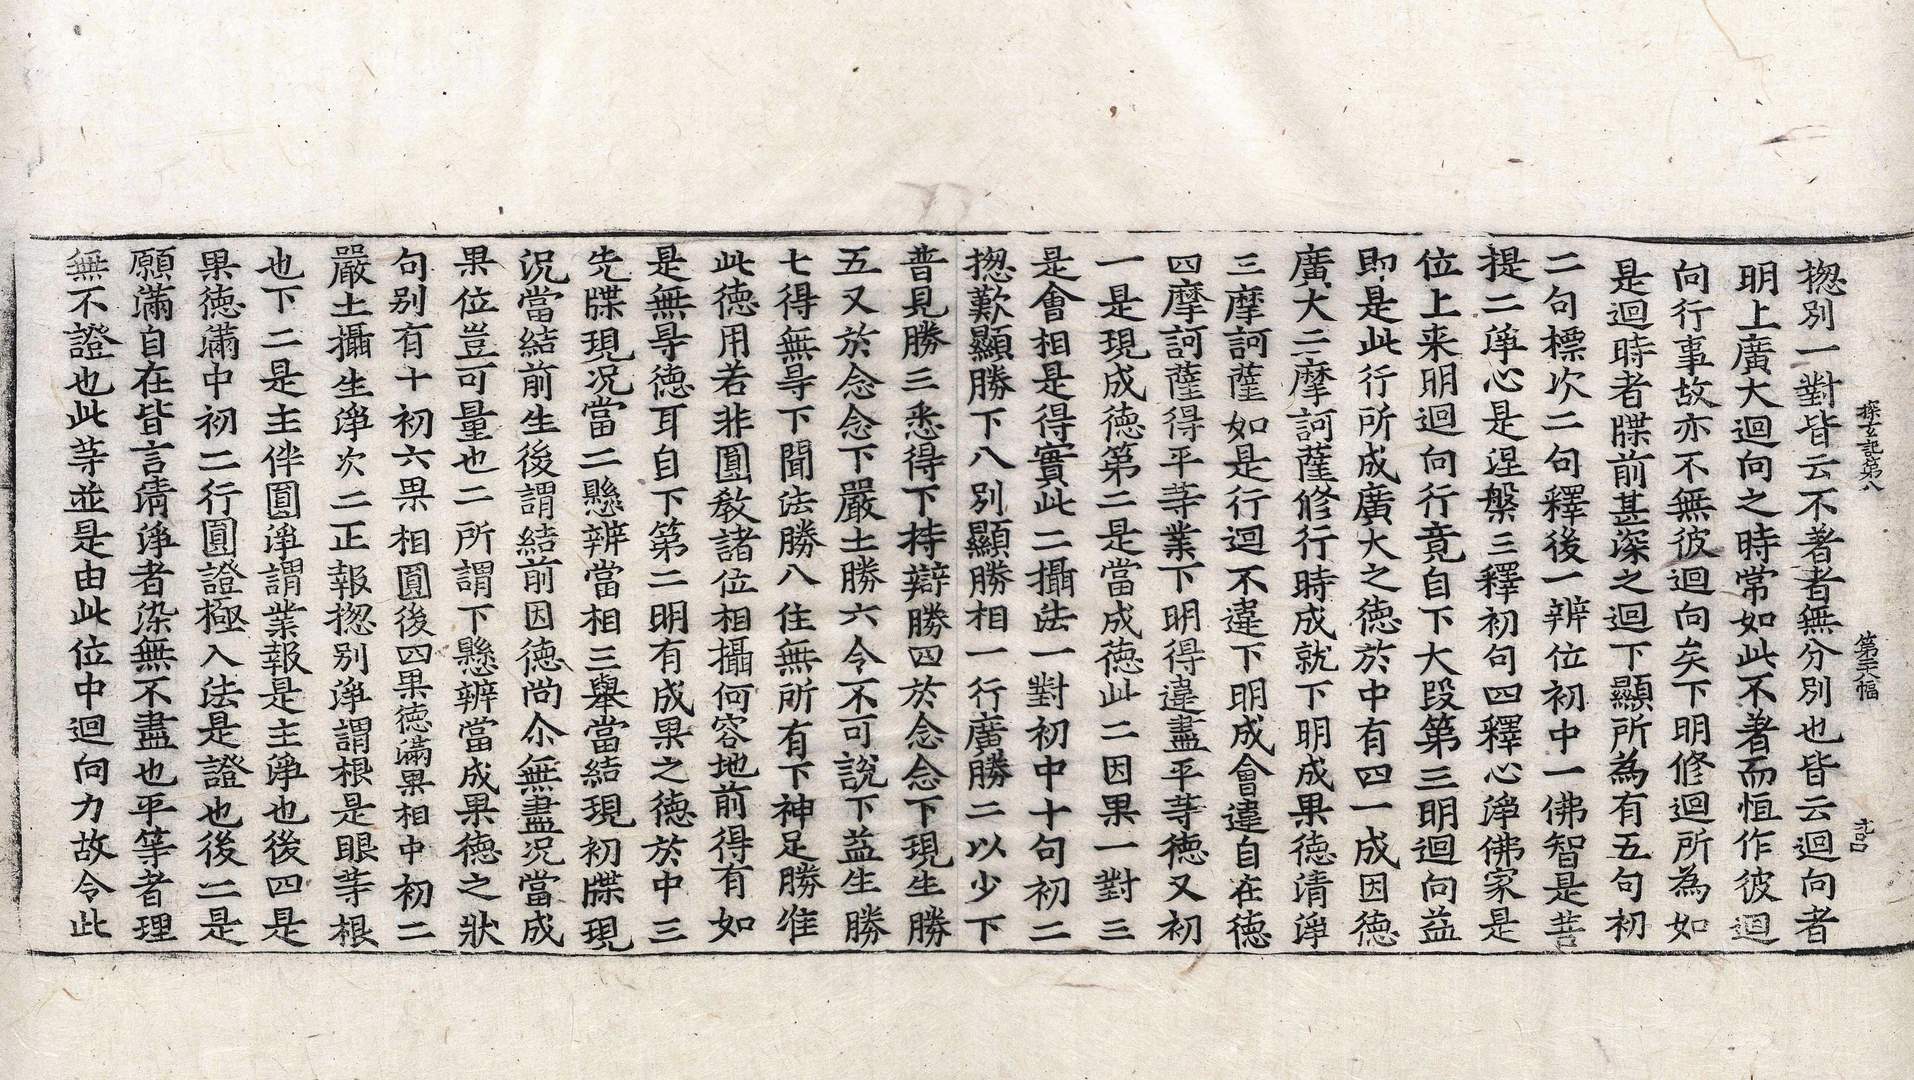 探玄記第八 第三十六幅
揔別一對皆云不著者無分別也皆云迴向者
明上廣大迴向之時常如此不著而恒作彼迴
向行事故亦不無彼迴向矣下明修迴所為如
是迴時者牒前甚深之迴下顯所為有五句初
二句標次二句釋後一辨位初中一佛智是菩
提二淨心是涅槃三釋初句四釋心淨佛家是
位上来明迴向行竟自下大段第三明迴向益
即是此行所成廣大之德於中有四一成因德
廣大二摩訶薩修行時成就下明成果德清淨
三摩訶薩如是行迴不違下明成會違自在德
四摩訶薩得平等業下明得違盡平等德又初
一是現成德第二是當成德此二因果一對三
是會相是得實此二攝法一對初中十句初二
揔歎顯勝下八別顯勝相一行廣勝二以少下
普見勝三悉得下持辯勝四於念念下現生勝
五又於念念下嚴土勝六令不可說下益生勝
七得無㝵下聞法勝八住無所有下神足勝准
此德用若非圓教諸位相攝何容地前得有如
是無㝵德耳自下第二明有成果之德於中三
先牒現况當二懸辨當相三舉當結現初牒現
況當結前生後謂結前因德尚尒無盡况當成
果位豈可量也二所謂下懸辨當成果德之狀
句别有十初六果相圓後四果德滿果相中初二
嚴土攝生淨次二正報揔别淨謂根是眼等根
也下二是主伴圓淨謂業報是主淨也後四是
果德滿中初二行圓證極入法是證也後二是
願滿自在皆言清淨者染無不盡也平等者理
無不證也此等並是由此位中迴向力故令此